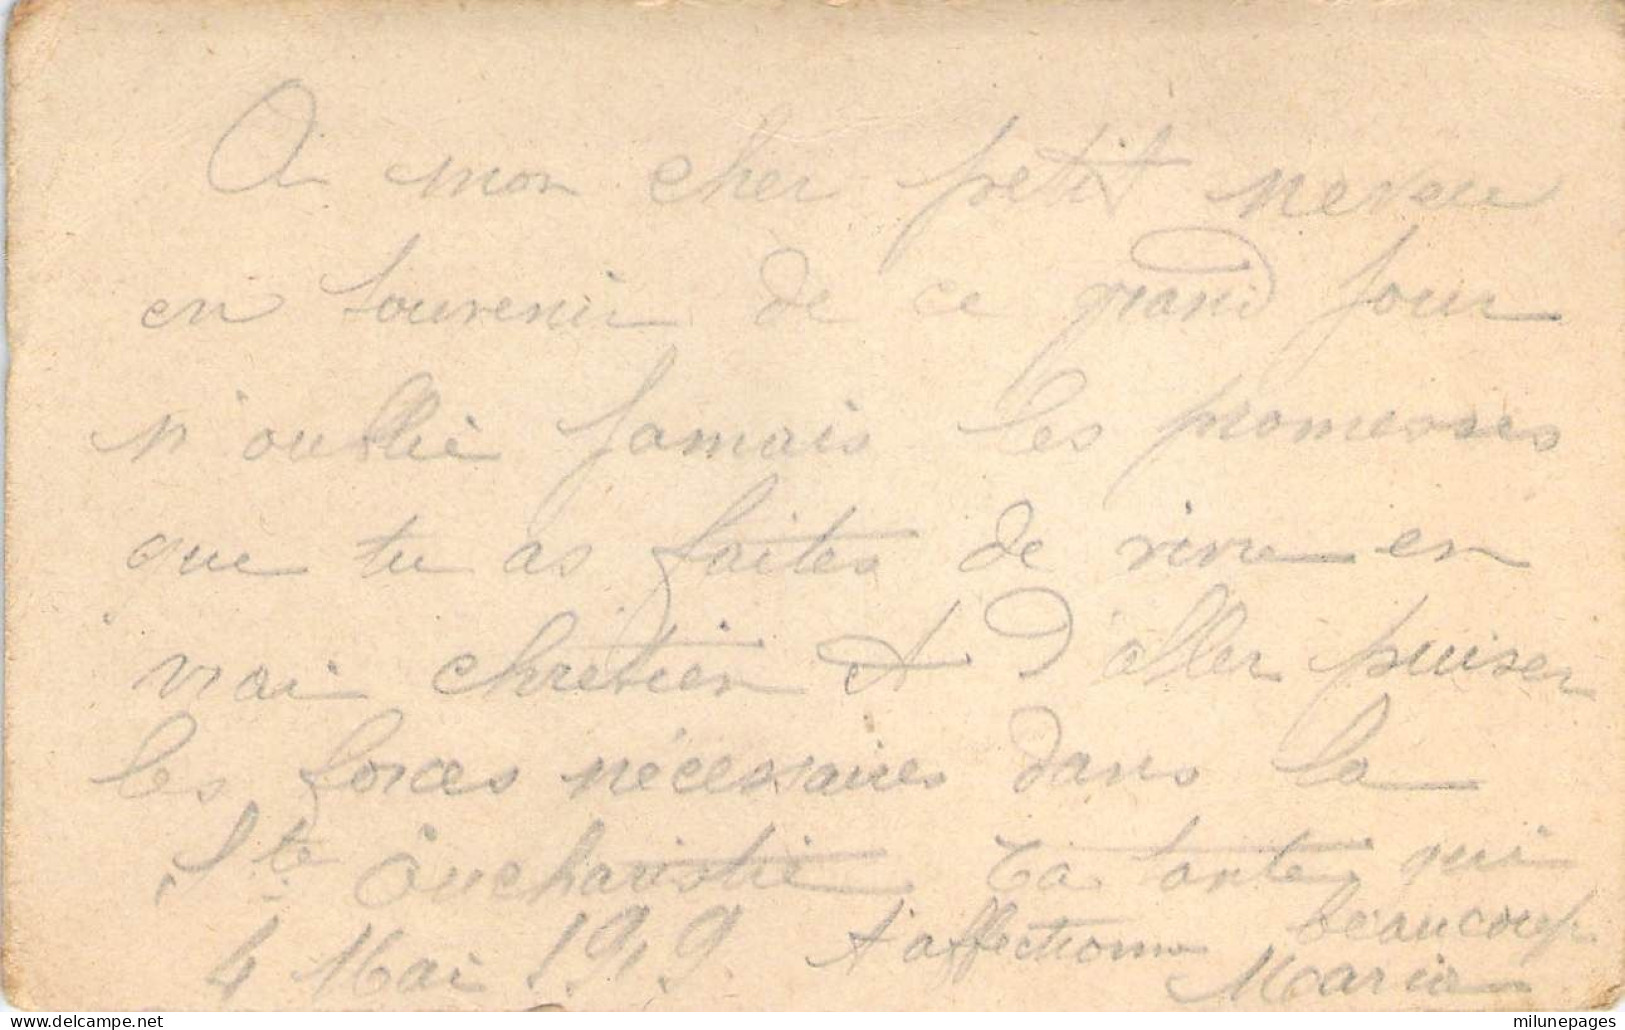 A mon cher petit neveu
en souvenir de ce grand jour
n'oublie jamais les promesses
que tu as faites de vivre en
vrai chrétien et d'aller puiser
les forces nécessaires dans la
Ste Eucharistie Ta tante qui
t'affectionne beaucoup
4 Mai 1919. Maria
delcampe.net
milunepages